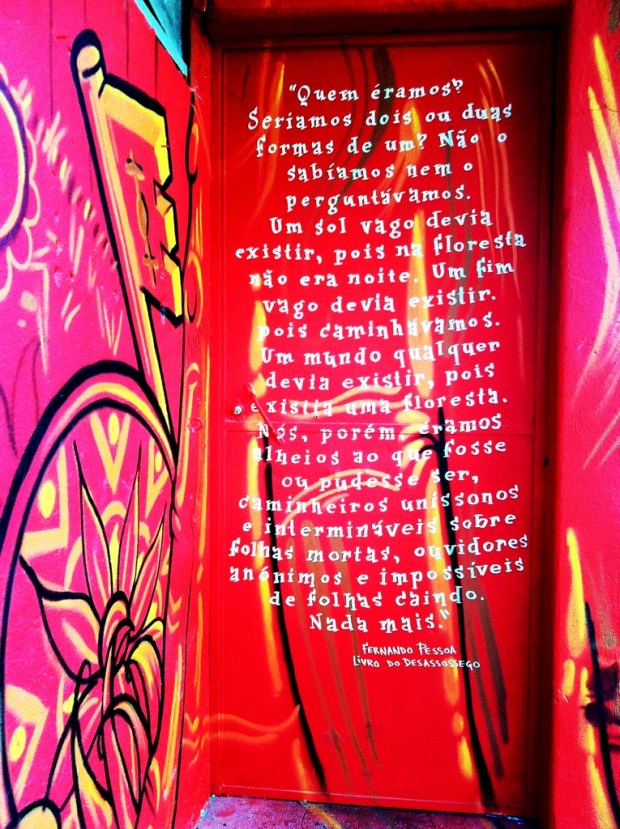 "Quem éramos?
Seríamos dois ou duas
formas de um? Não o
sabíamos nem o
perguntávamos.
Um sol vago devia
existir, pois na floresta
não era noite. Um fim
vago devia existir.
pois caminhávamos.
Um mundo qualquer
devia existir, pois
existia uma floresta.
Nós, porém, éramos
alheios ao que fosse
ou pudesse ser,
caminheiros uníssonos
e intermináveis sobre
folhas mortas, ouvidores
anónimos e impossíveis
de folhas caindo.
Nada mais."
Fernando Pessoa
Livro do Desassossego